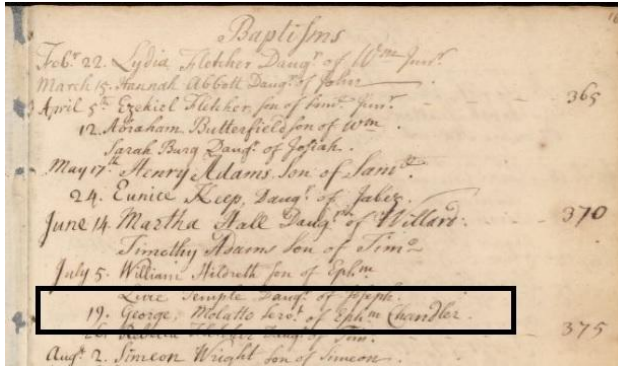 Baptisms
Febr 22. Lydia Fletcher Daugr of Wm Junr.
March 15. Hannah Abbott Daugr of John
April 5th Ezekiel Fletcher, son of Junr. 365
12. Abraham Butterfield son of Wm.
Sarah Burg Daugr. of Josiah.
May 17th Henry Adams. Son of Samll.
24. Eunice Keep, Daugr. of Jabez.
June 14. Martha Hall Daugr. of Willard. 370
Timothy Adams Son of Timo
July 5. William Hildreth son of Ephm
Temple Daugr. of Joseph.
19. George, Molatto Servt. of Ephm Chandler.
26. Rebecca Fletcher Daugr of Tim. 375
Augt. 2. Simeon Wright son of Simeon.